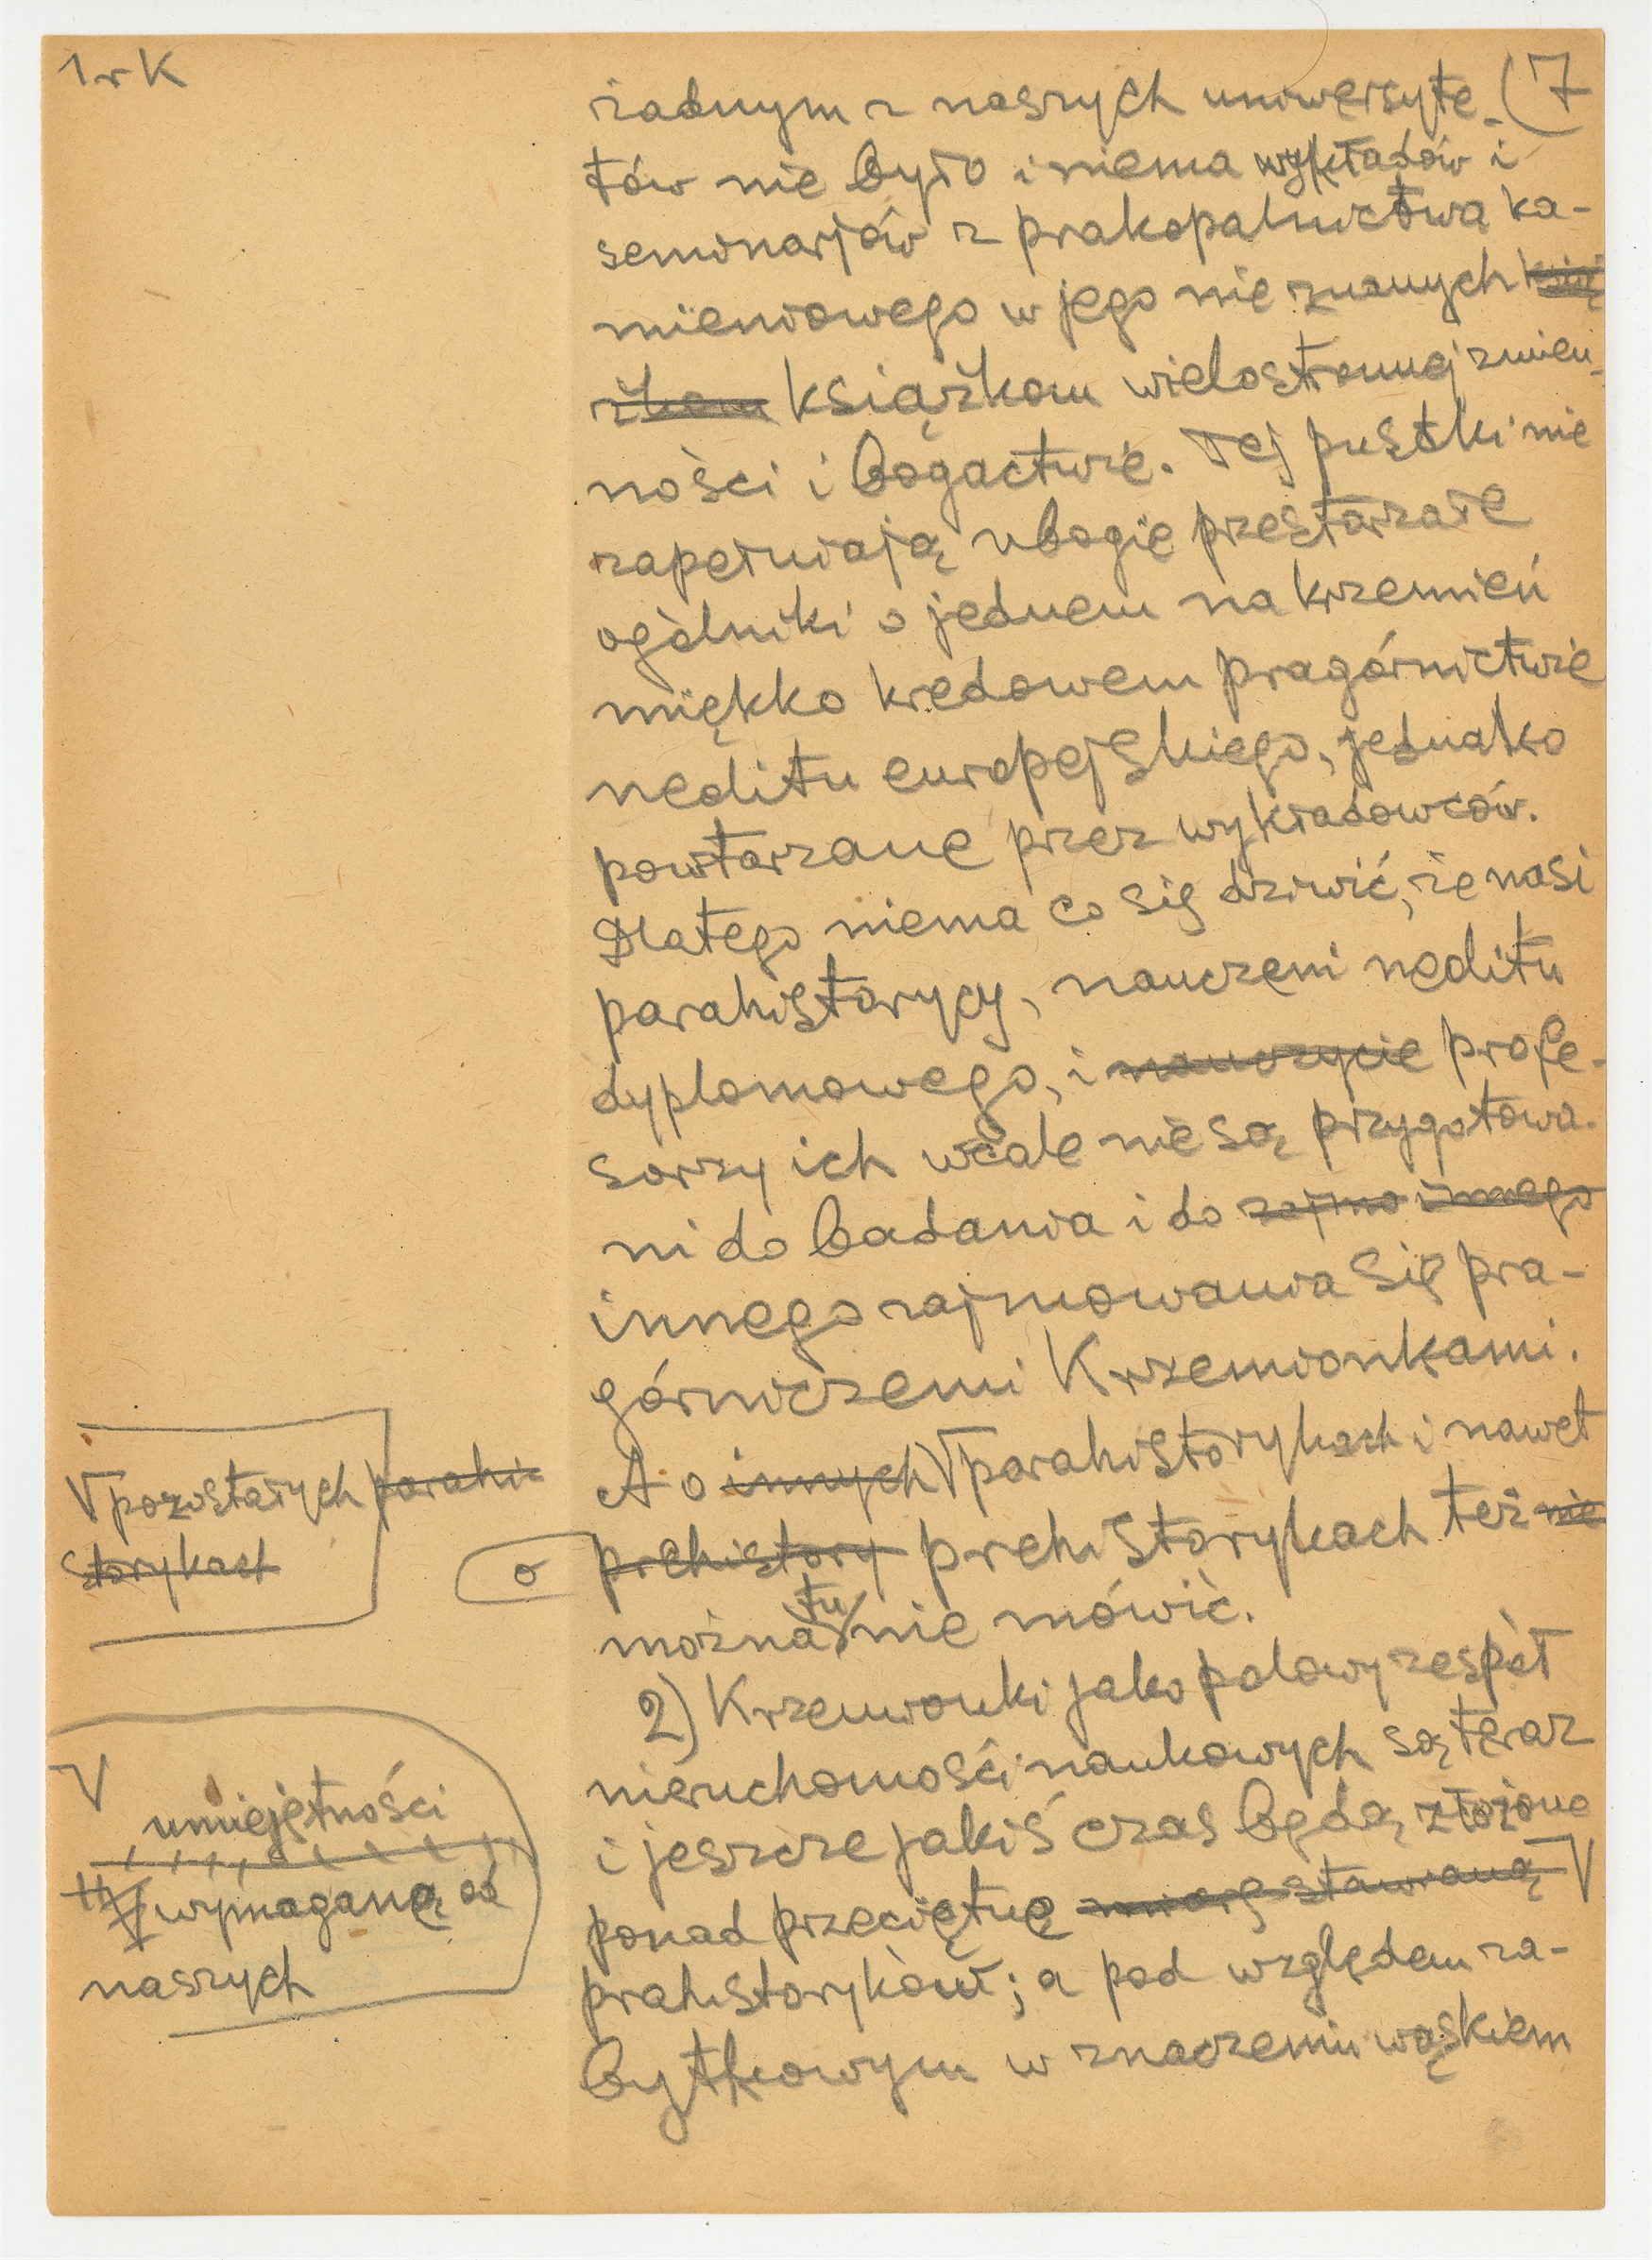 1rK
żadnym z naszych uniwersyte- (7
tów nie było i niema wykładów i
seminarjów z prakopalnictwa ka-
mieniowego w jego nie znanych ksią
żkom książkom wielostronnej zmien-
ności i bogactwie. Tej pustki nie
zapełniają ubogie przestarzałe
ogólniki o jednem na krzemień
miękko kredowem pragórnictwie
neolitu europejskiego, jednako
powtarzane przez wykładowców.
Dlatego niema co się dziwić, że nasi
parahistorycy, nauczeni neolitu
dyplomowego, i nauczycie profe-
sorzy ich wcale nie są przygotowa-
ni do badania i do zajmo innego
innego zajmowania się pra-
górniczemi Krzemionkami.
A o innych V parahistorykach i nawet
V pozostałych parahi-
storykach
o prehistory prehistorykach też nie
można tu nie mówić.
2) Krzemionki jako polowy zespół
nieruchomości naukowych są teraz
i jeszcze jakiś czas będą złożone
ponad przeciętnę miarę stawianą V
V umiejętności
wymaganą od
naszych
prahistoryków; a pod względem za-
bytkowym w znaczeniu wąskiem